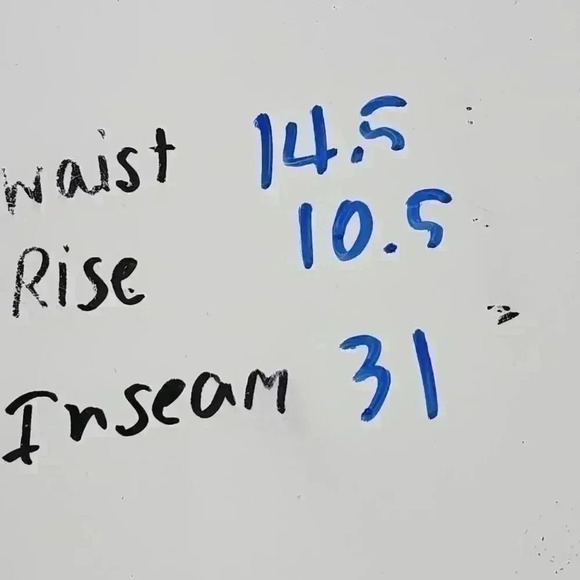 waist 14.5
Rise 10.5
Inseam 31